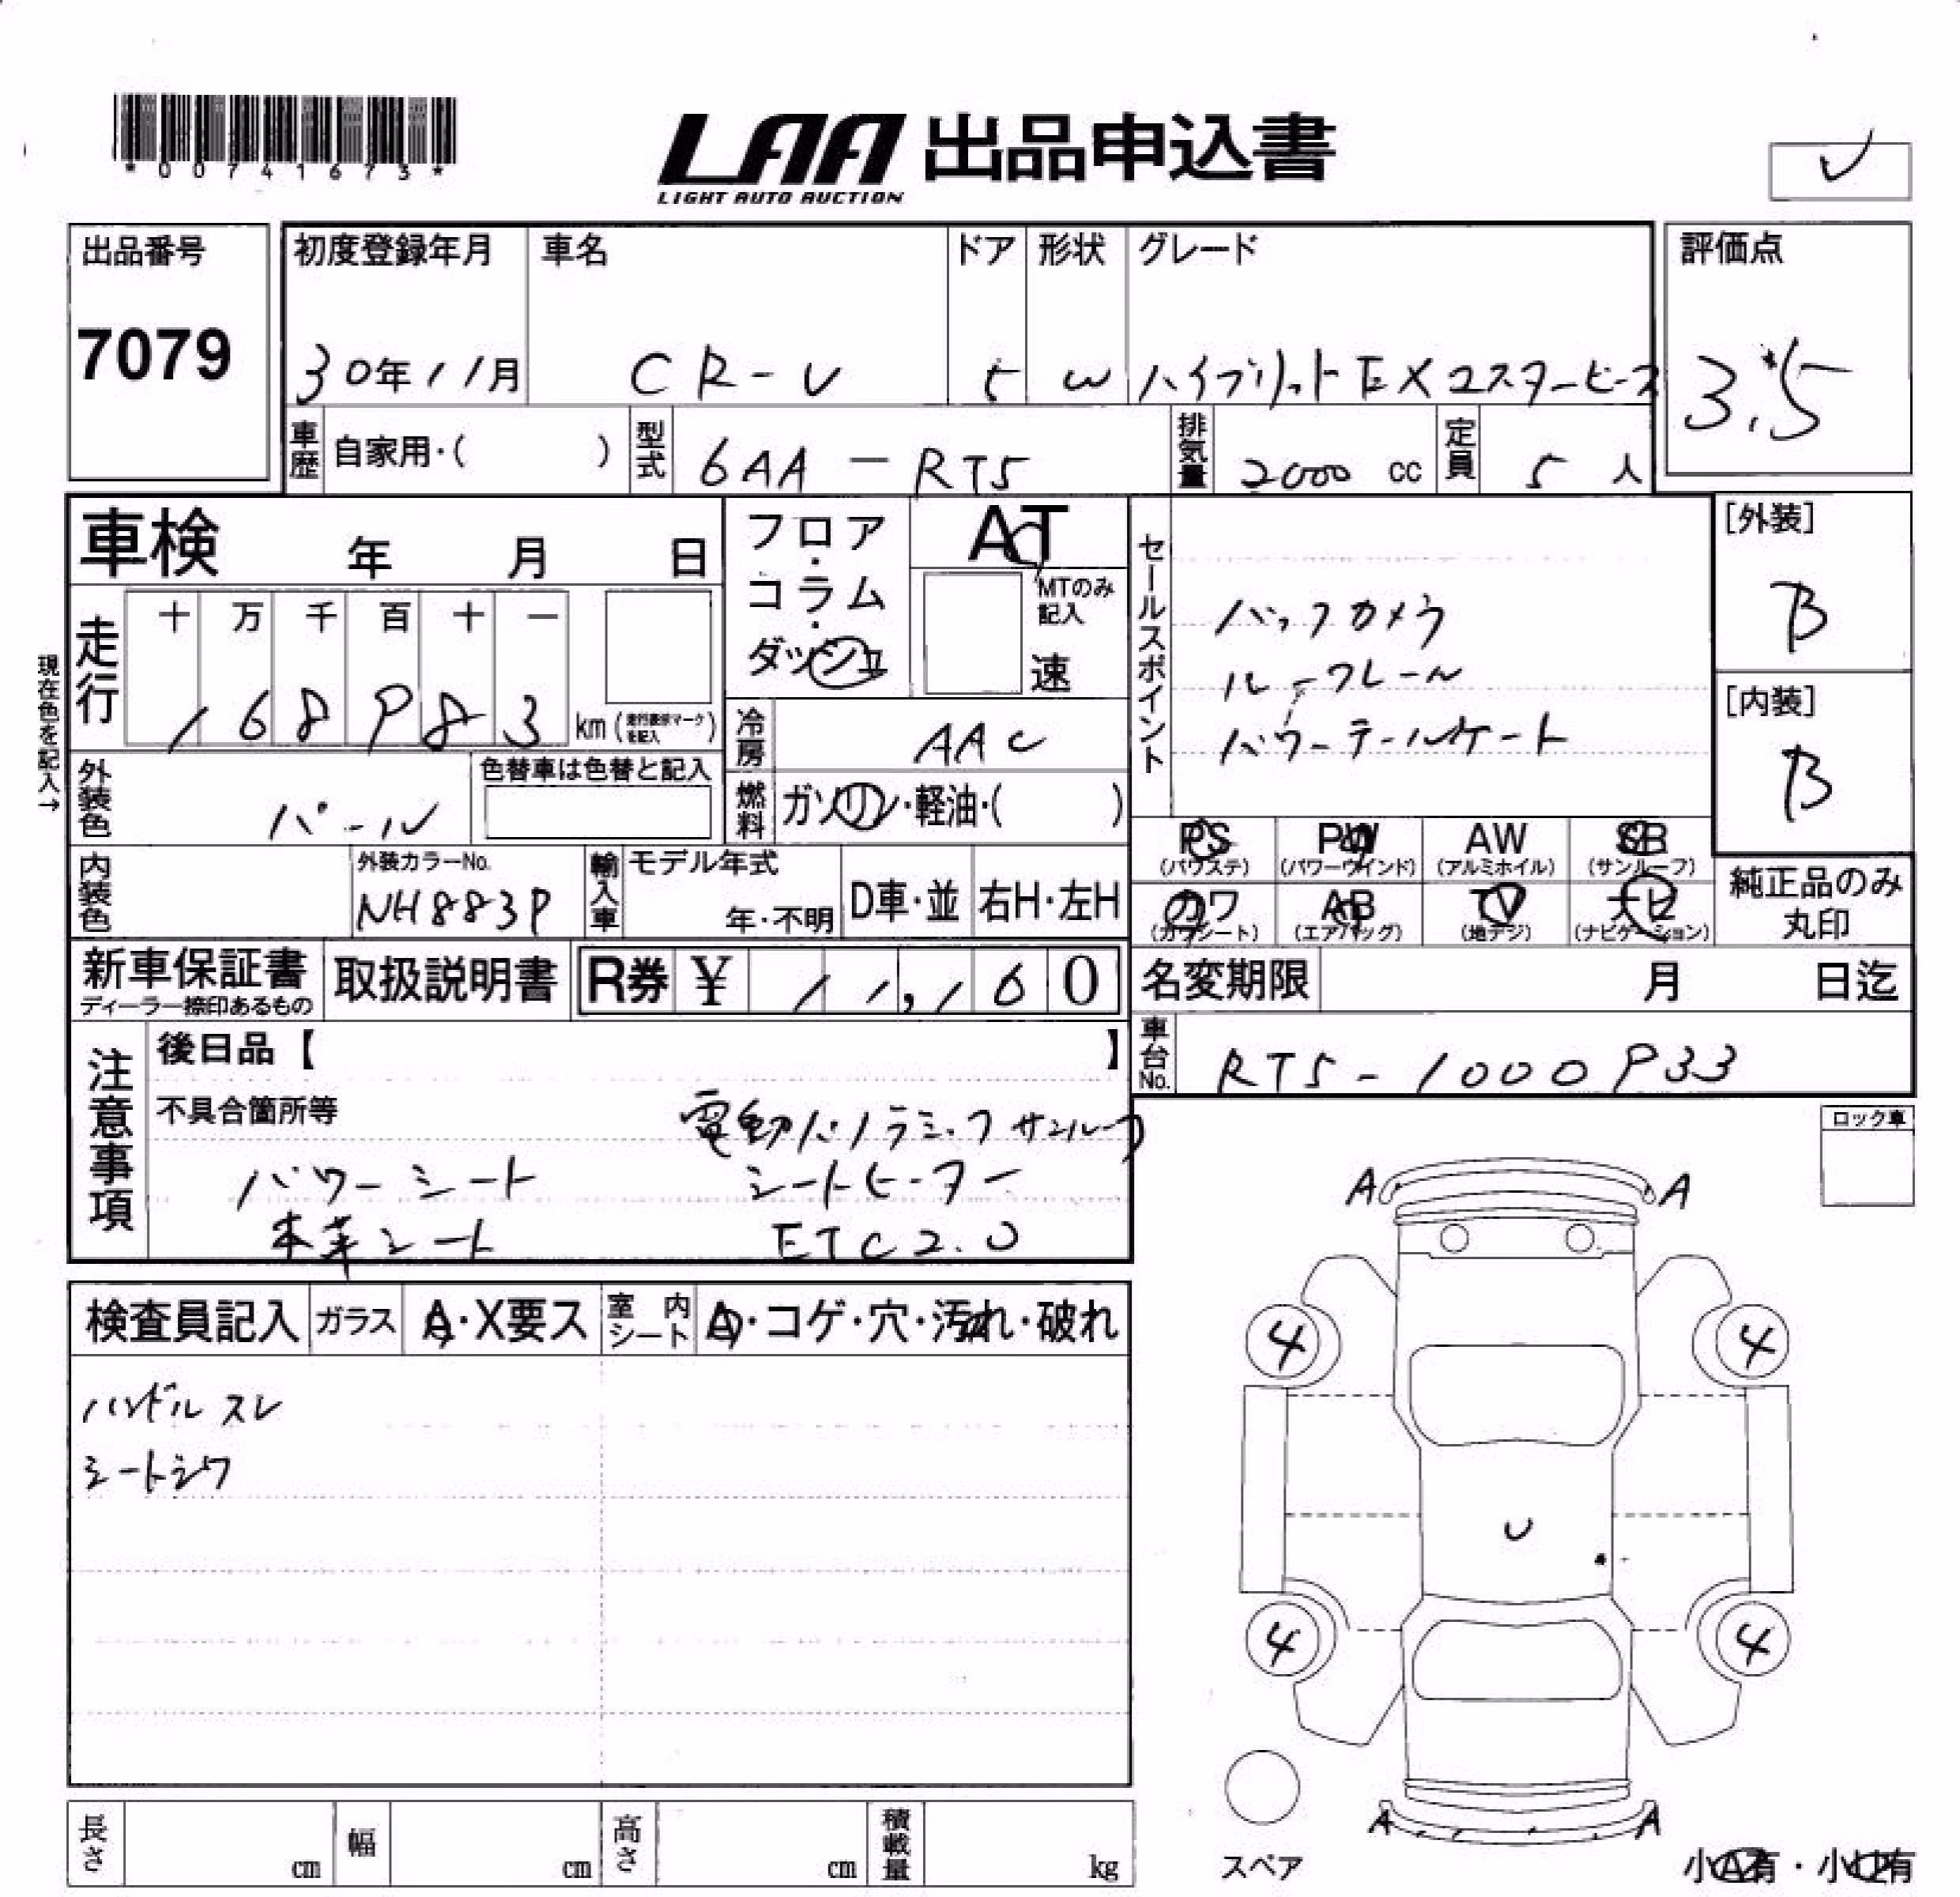 *00741673*
LAA 出品申込書
LIGHT AUTO AUCTION
出品番号
7079
初度登録年月
30年11月
車名
CR-V
ドア
5
形状
W
グレード
ハイブリットEXマスターピース
評価点
3.5
車歴
自家用・( )
型式
6AA-RT5
排気量
2000 cc
定員
5 人
車検 年 月 日
フロア・コラム・ダッシュ
AT
MTのみ記入
速
セールスポイント
バックカメラ
ルーフレール
パワーテールゲート
[外装]
B
[内装]
B
現在色を記入→
走行
十 万 千 百 十 一
168983 km (走行表示マークを記入)
冷房
AAC
燃料
ガソリン・軽油・( )
外装色
パール
色替車は色替と記入
内装色
外装カラーNo.
NH883P
輸入車
モデル年式
年・不明
D車・並
右H・左H
PS (パワステ)
PW (パワーウインド)
AW (アルミホイル)
SR (サンルーフ)
カワ (カワシート)
AB (エアバッグ)
TV (地デジ)
ナビ (ナビゲーション)
純正品のみ丸印
新車保証書
ディーラー捺印あるもの
取扱説明書
R券 ¥ 11,160
名変期限 月 日迄
車台No.
RT5-1000933
注意事項
後日品【 】
不具合箇所等
電動パノラミックサンルーフ
パワーシート シートヒーター
本革シート ETC2.0
ロック車
検査員記入
ガラス
A・X要ス
室内シート
A・コゲ・穴・汚れ・破れ
ハンドルスレ
シートシワ
A A
4 4
U
4 4
A A
スペア
小A有・小U有
長さ cm
幅 cm
高さ cm
積載量 kg